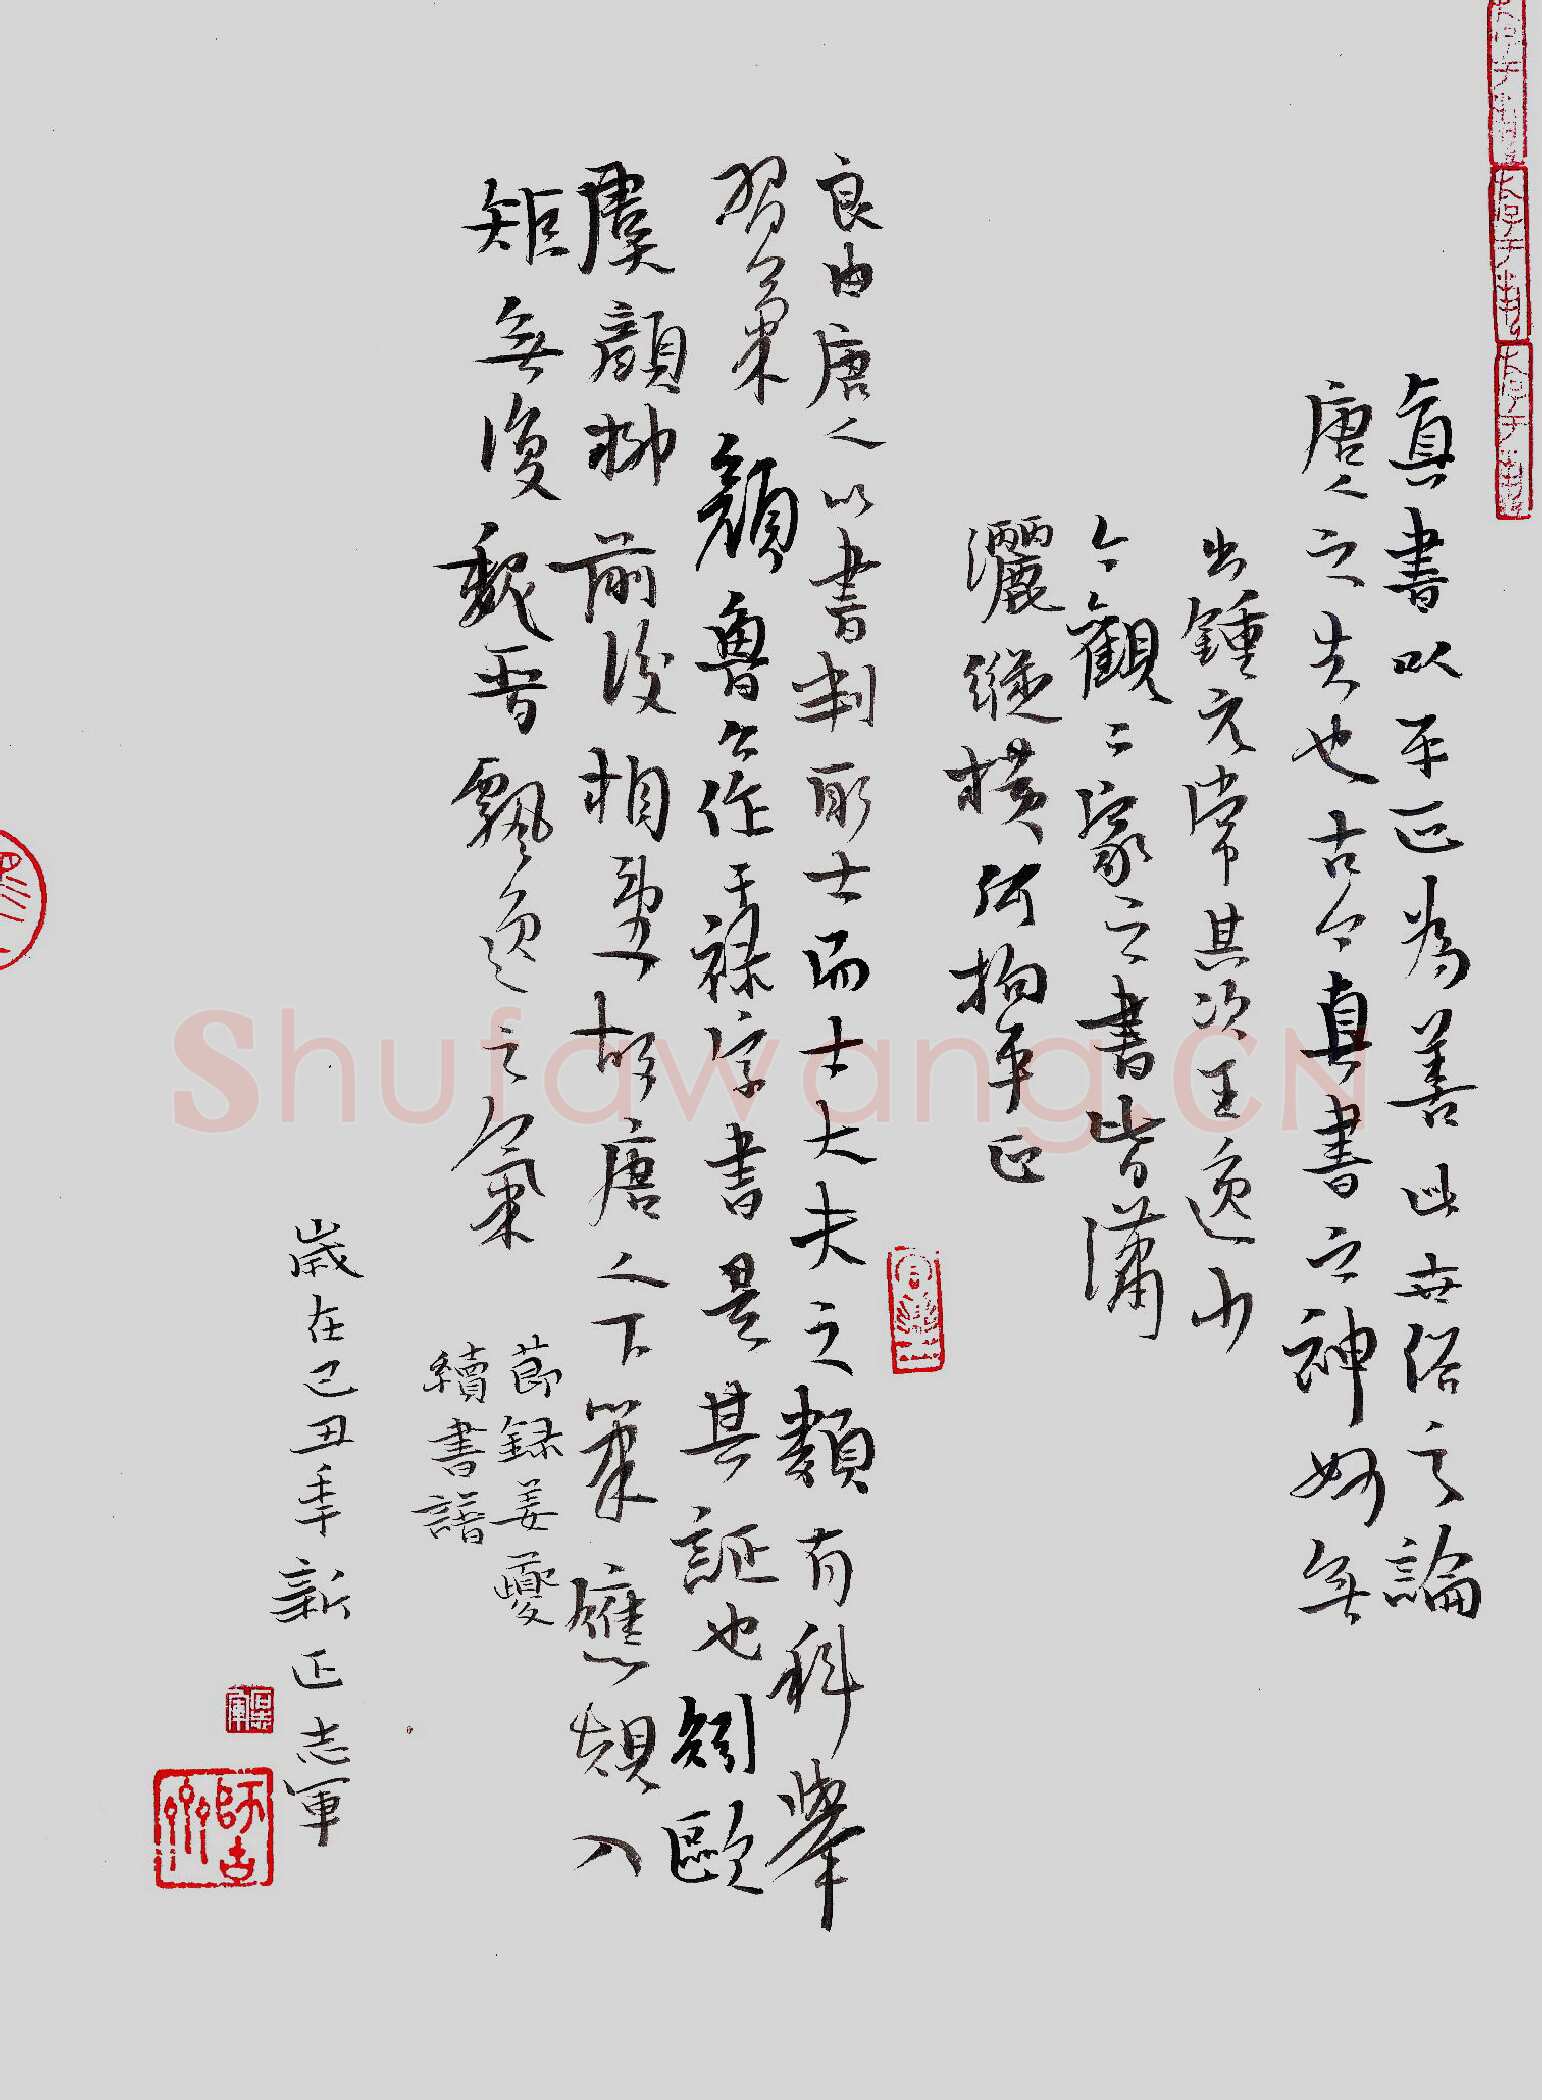 真書以平正為善此世俗之論
唐人之失也古今真書之神妙無
出鍾元常其次王逸少
今觀二家之書皆瀟
灑縱橫何拘平正
良由唐人以書判取士而士大夫之類有科舉
習氣顏魯公作干禄字書是其証也矧歐
虞顏柳前後相望故唐人下筆應規入
矩無復魏晉飄逸之氣
節録姜夔
續書譜
歲在己丑年新正志軍
師古
Shufawang.CN